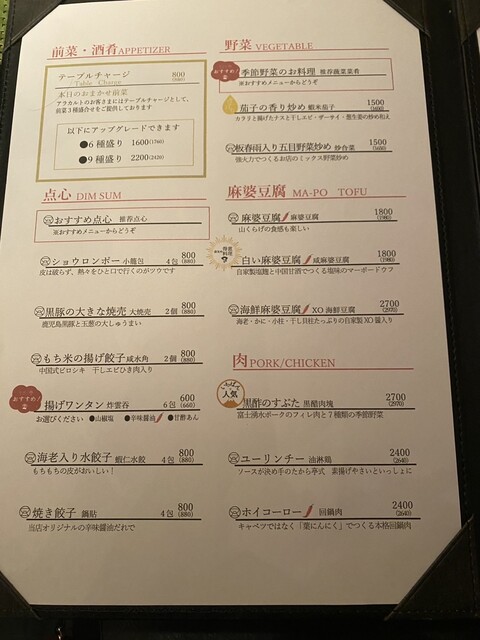 前菜・酒肴APPETIZER
テーブルチャージ 800
(Table Charge) (880)
本日のおまかせ前菜
アラカルトのお客さまにはテーブルチャージとして、
前菜3種盛合せをご提供しております
以下にアップグレードできます
●6種盛り 1600(1760)
●9種盛り 2200(2420)
点心 DIM SUM
おすすめ点心 推荐点心
※おすすめメニューからどうぞ
ショウロンポー 小籠包 4包 800(880)
皮は破らず、熱々をひと口で行くのがツウです
黒豚の大きな焼売 大焼売 2個 800(880)
鹿児島黒豚と玉葱の大しゅうまい
もち米の揚げ餃子 咸水角 2個 800(880)
中国式ピロシキ 干しエビひき肉入り
おすすめ!
揚げワンタン 炸雲呑 6包 600(660)
お選びください ●山椒塩 ●辛味醤油 ●甘酢あん
海老入り水餃子 蝦仁水餃 4包 800(880)
もちもちの皮がおいしい!
焼き餃子 鍋貼 4包 800(880)
当店オリジナルの辛味醤油だれで
野菜 VEGETABLE
おすすめ!
季節野菜のお料理 推荐蔬菜菜肴
※おすすめメニューからどうぞ
茄子の香り炒め 蝦米茄子 1500(1650)
カラリと揚げたナスと干しエビ・ザーサイ・葱生姜の炒め和え
板春雨入り五目野菜炒め 炒合菜 1500(1650)
強火力でつくるお店のミックス野菜炒め
麻婆豆腐 MA-PO TOFU
麻婆豆腐 麻婆豆腐 1800(1980)
山くらげの食感も楽しい
白い麻婆豆腐 咸麻婆豆腐 1800(1980)
自家製塩麹と中国甘酒でつくる塩味のマーボードウフ
海鮮麻婆豆腐 XO海鮮豆腐 2700(2970)
海老・かに・小柱・干し貝柱たっぷりの自家製XO醤入り
肉PORK/CHICKEN
人気
黒酢のすぶた 黒醋肉塊 2700(2970)
富士湧水ポークのフィレ肉と7種類の季節野菜
ユーリンチー 油淋鶏 2400(2640)
ソースが決め手のたから亭式 素揚げやさいといっしょに
ホイコーロー 回鍋肉 2400(2640)
キャベツではなく「葉にんにく」でつくる本格回鍋肉